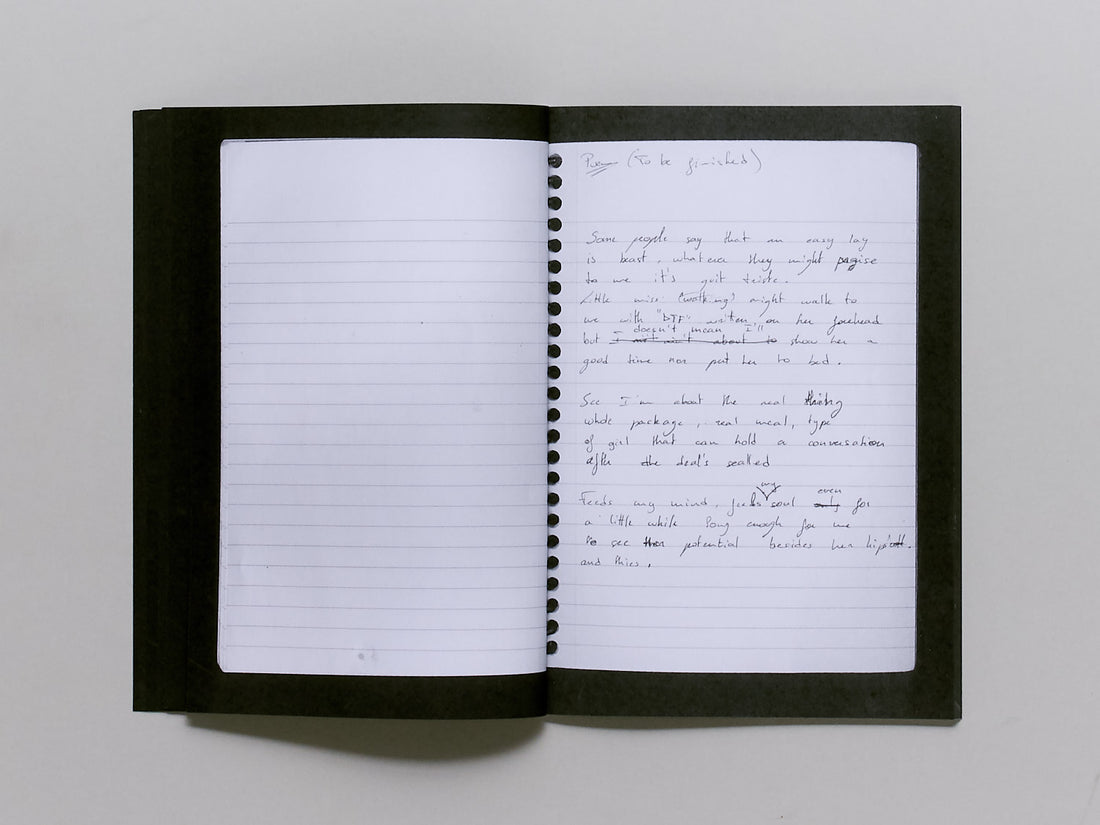 Poem (To be finished)
Some people say that an easy lay
is beast, whatever they might
to me it's quit triste.
Little miss (walking) might walk to
me with "DTF" written on her forehead
doesn't mean I'll
but I ain't about to show her a
good time nor put her to bed.
See I'm about the real thing
whole package, real meal, type
of girl that can hold a conversation
after the deal's sealled
my even
Feeds my mind, feeds soul only for
a little while long enough for me
to see her potential besides her hips
and thies.